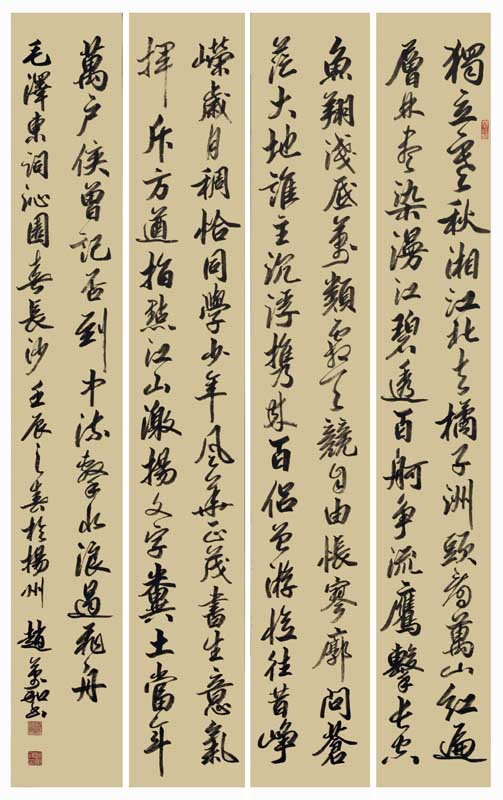 獨立寒秋湘江北去橘子洲頭看萬山紅遍
層林盡染漫江碧透百舸爭流鷹擊長空
魚翔淺底萬類霜天競自由悵寥廓問蒼
茫大地誰主沉浮攜來百侶曾游憶往昔崢
嶸歲月稠恰同學少年風華正茂書生意氣
揮斥方遒指點江山激揚文字糞土當年
萬戶侯曾記否到中流擊水浪遏飛舟
毛澤東詞沁園春長沙壬辰之春於揚州 趙